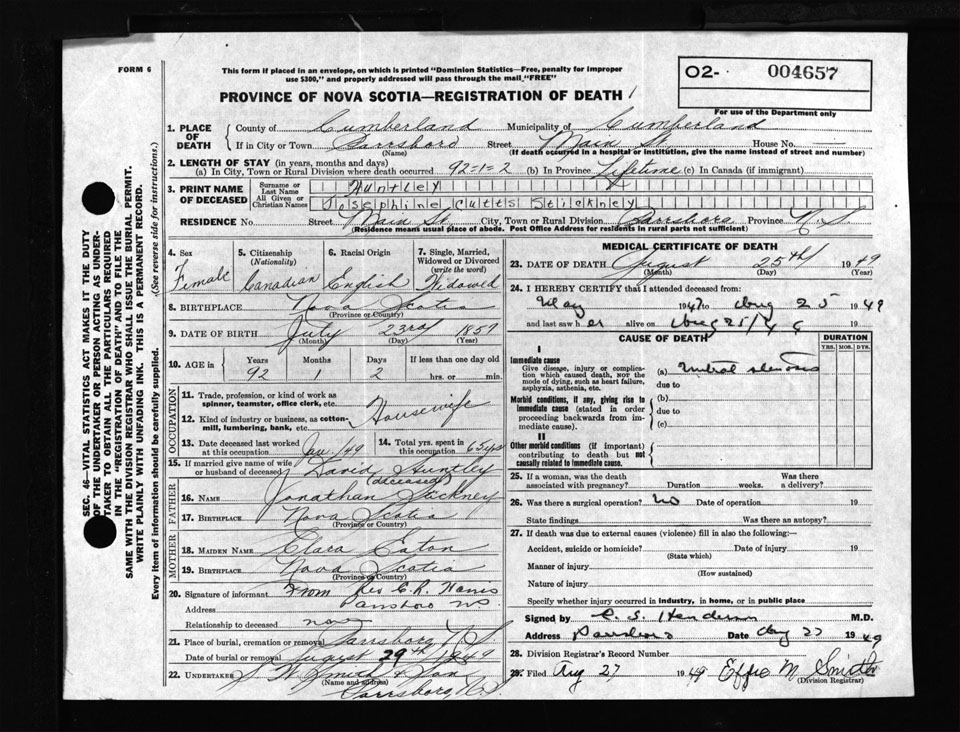 FORM 6
This form if placed in an envelope, on which is printed "Dominion Statistics—Free, penalty for improper
use $300," and properly addressed will pass through the mail "FREE"
O2- 004657
For use of the Department only
PROVINCE OF NOVA SCOTIA—REGISTRATION OF DEATH
1. PLACE OF DEATH { County of Cumberland Municipality of Cumberland
If in City or Town Parrsboro Street Main St. House No. —
(Name) (If death occurred in a hospital or institution, give the name instead of street and number)
2. LENGTH OF STAY (in years, months and days)
(a) In City, Town or Rural Division where death occurred 92-1-2 (b) In Province Lifetime (c) In Canada (if immigrant)
3. PRINT NAME OF DECEASED { Surname or Last Name Huntley
All Given or Christian Names Josephine Cutts Stickney
RESIDENCE No. Street Main St. City, Town or Rural Division Parrsboro Province N.S.
(Residence means usual place of abode. Post Office Address for residents in rural parts not sufficient)
4. Sex Female
5. Citizenship (Nationality) Canadian
6. Racial Origin English
7. Single, Married, Widowed or Divorced (write the word) Widowed
8. BIRTHPLACE Nova Scotia
(Province or Country)
9. DATE OF BIRTH July 23rd 1857
(Month) (Day) (Year)
10. AGE in { Years Months Days If less than one day old
92 1 2 hrs. or min.
OCCUPATION
11. Trade, profession, or kind of work as spinner, teamster, office clerk, etc.
12. Kind of industry or business, as cotton-mill, lumbering, bank, etc.
Housewife
13. Date deceased last worked at this occupation Jan. /49
14. Total yrs. spent in this occupation 65 yrs
15. If married give name of wife or husband of deceased David Huntley
(deceased)
FATHER
16. NAME Jonathan Stickney
17. BIRTHPLACE Nova Scotia
(Province or Country)
MOTHER
18. MAIDEN NAME Clara Eaton
19. BIRTHPLACE Nova Scotia
(Province or Country)
20. Signature of informant From Rev C.R.
Address Parrsboro NS
Relationship to deceased
21. Place of burial, cremation or removal Parrsboro, N.S.
Date of burial or removal August 29th 1949
22. UNDERTAKER Smith & Son
(Name and address)
Parrsboro, N.S.
MEDICAL CERTIFICATE OF DEATH
23. DATE OF DEATH August 25th 1949
(Month) (Day) (Year)
24. I HEREBY CERTIFY that I attended deceased from:
May 1947 to Aug 25 1949
and last saw her alive on Aug 25/49 19
CAUSE OF DEATH
DURATION
YRS. MOS. DYS.
I
Immediate cause
Give disease, injury or complication which caused death, NOT the mode of dying, such as heart failure, asphyxia, asthenia, etc.
(a) Mitral stenosis
due to
Morbid conditions, if any, giving rise to immediate cause (stated in order proceeding backwards from immediate cause).
(b)
due to
(c)
II
Other morbid conditions (if important) contributing to death but not causally related to immediate cause.
25. If a woman, was the death associated with pregnancy? Duration weeks. Was there a delivery?
26. Was there a surgical operation? No Date of operation 19
State findings Was there an autopsy?
27. If death was due to external causes (violence) fill in also the following:—
Accident, suicide or homicide? Date of injury 19
(State which)
Manner of injury
(How sustained)
Nature of injury
Specify whether injury occurred in industry, in home, or in public place
Signed by M.D.
Address Parrsboro Date Aug 27 1949
28. Division Registrar's Record Number
29. Filed Aug 27 1949 Effie M Smith
(Division Registrar)
SEC. 46—VITAL STATISTICS ACT MAKES IT THE DUTY
OF THE UNDERTAKER OR PERSON ACTING AS UNDER-
TAKER TO OBTAIN ALL THE PARTICULARS REQUIRED
IN THE "REGISTRATION OF DEATH" AND TO FILE THE
SAME WITH THE DIVISION REGISTRAR WHO SHALL ISSUE THE BURIAL PERMIT.
WRITE PLAINLY WITH UNFADING INK. THIS IS A PERMANENT RECORD.
Every item of information should be carefully supplied. (See reverse side for instructions.)